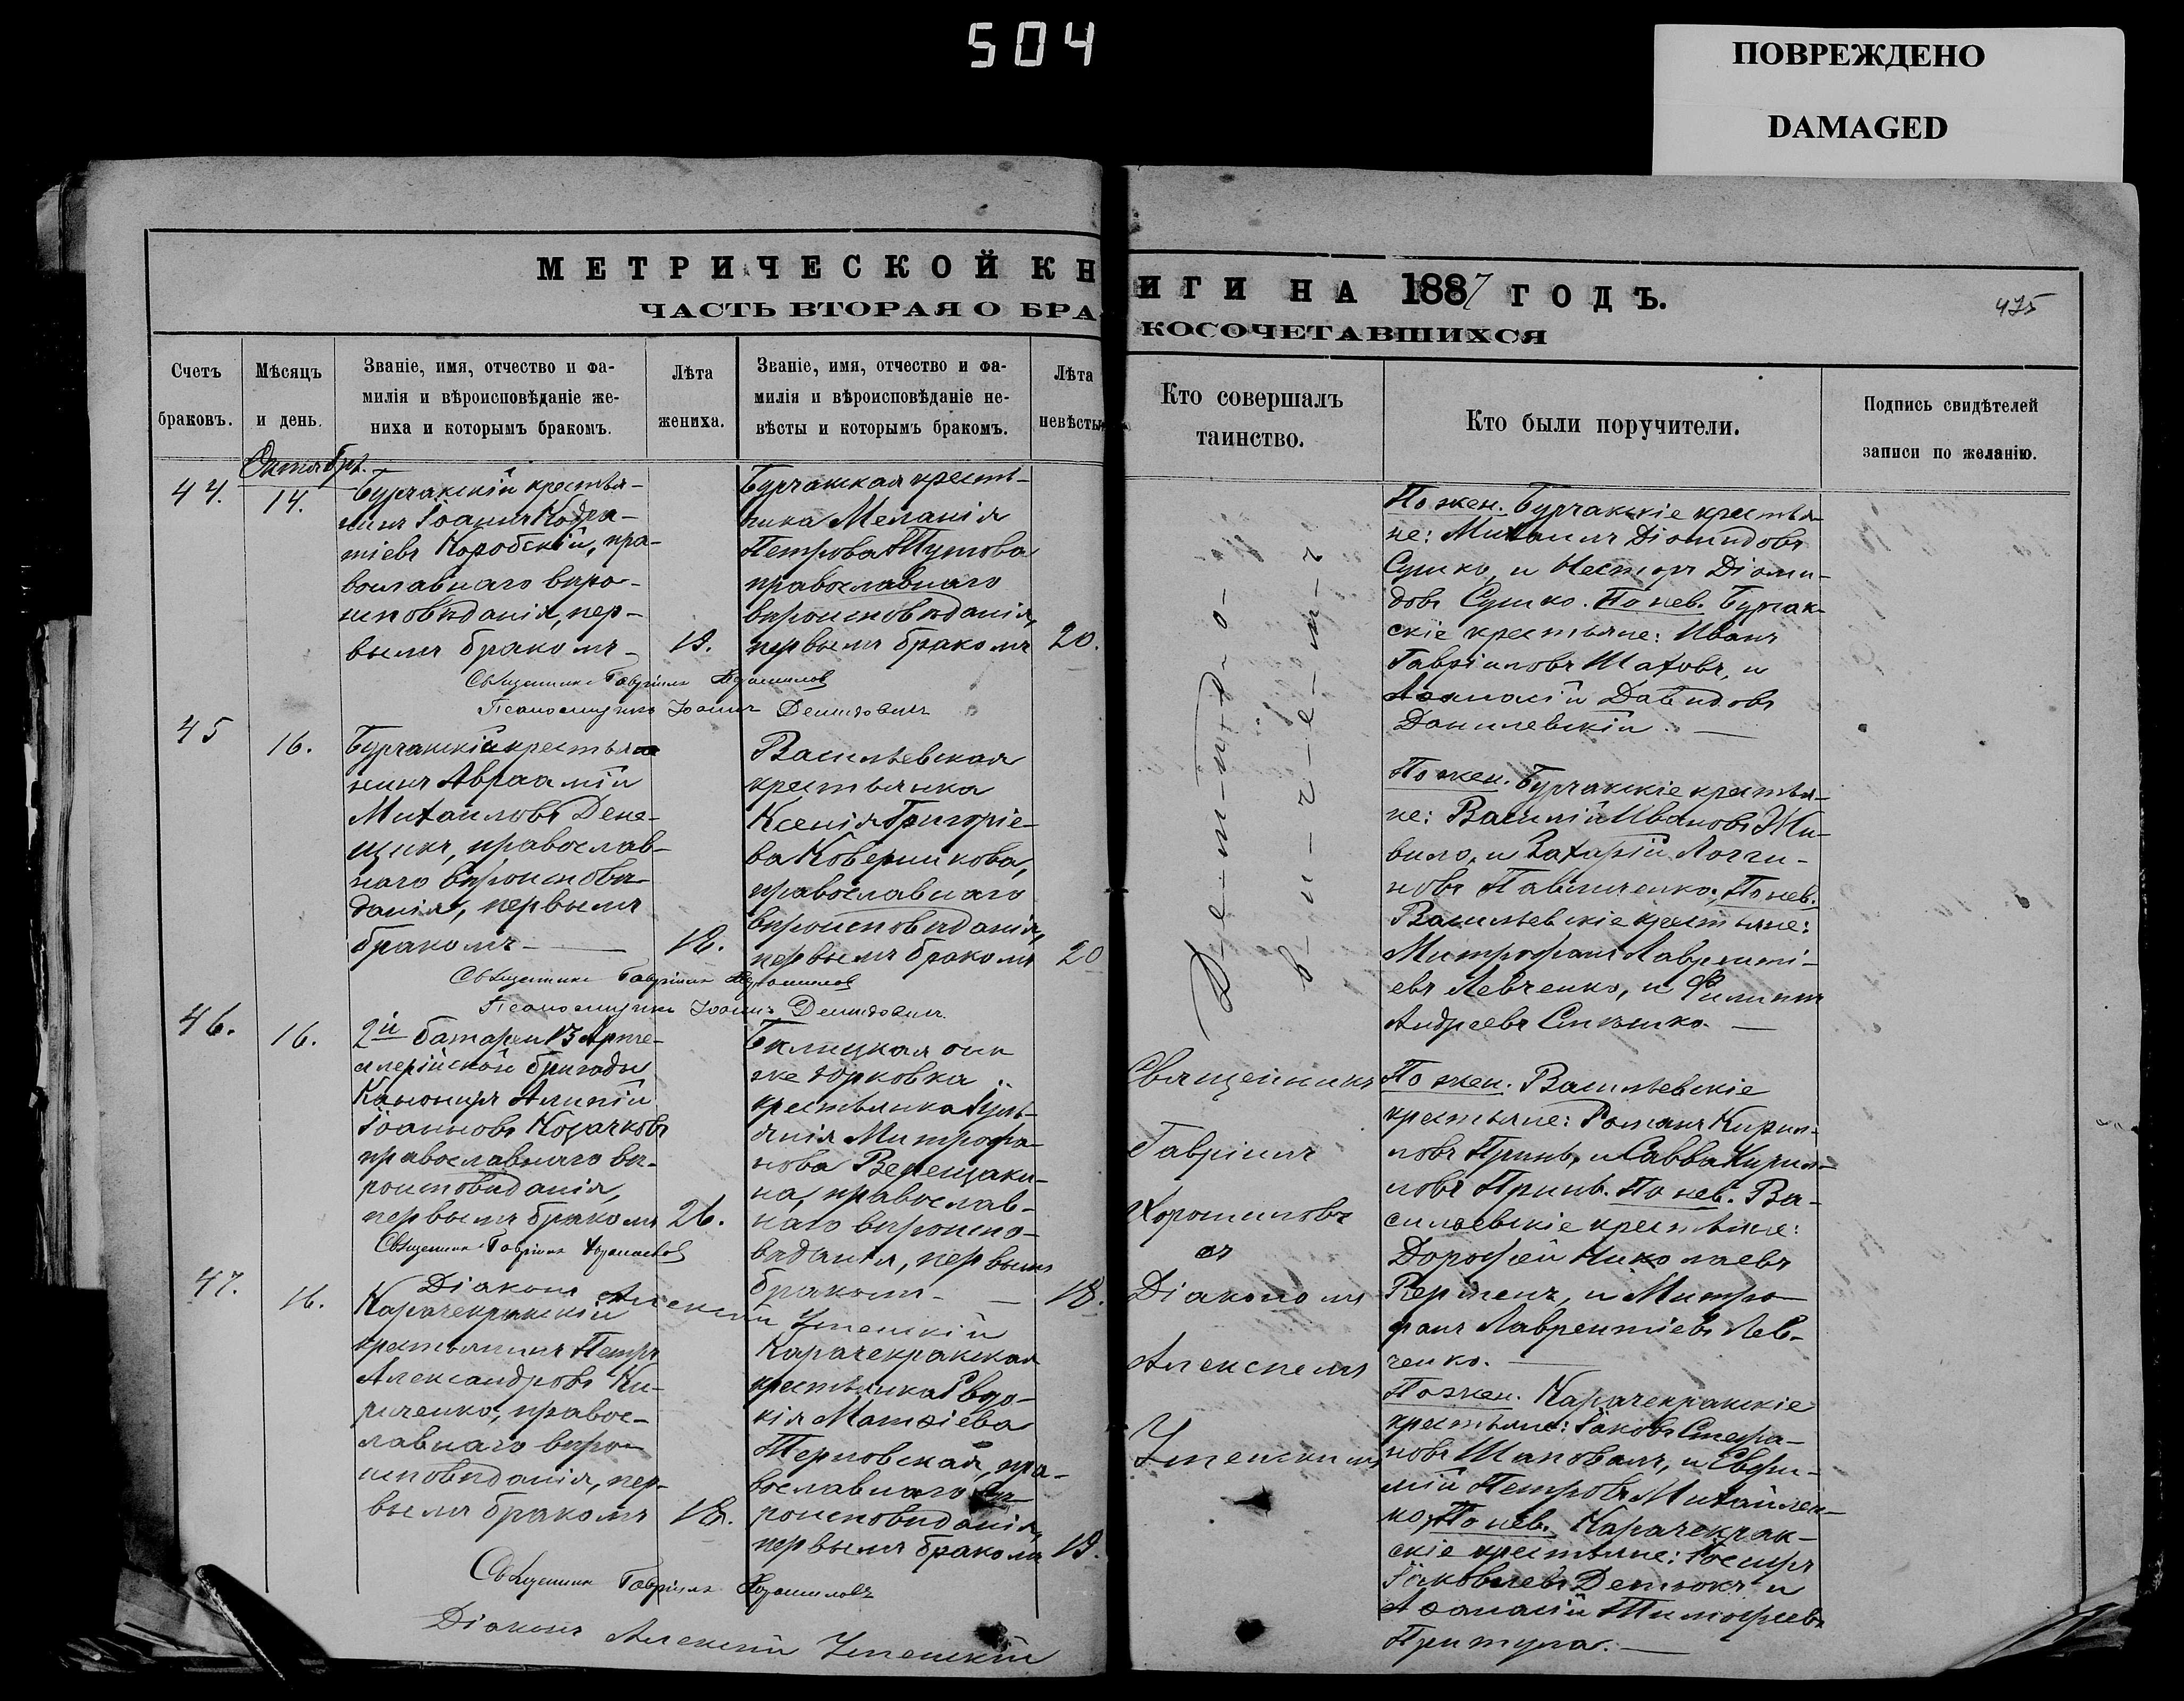 504
ПОВРЕЖДЕНО
DAMAGED
МЕТРИЧЕСКОЙ КНИГИ НА 1887 ГОДЪ.
475
ЧАСТЬ ВТОРАЯ О БРАКОСОЧЕТАВШИХСЯ
Счетъ браковъ.
Мѣсяцъ и день.
Званіе, имя, отчество и фа-
милія и вѣроисповѣданіе же-
ниха и которымъ бракомъ.
Лѣта жениха.
Званіе, имя, отчество и фа-
милія и вѣроисповѣданіе не-
вѣсты и которымъ бракомъ.
Лѣта невѣсты
Кто совершалъ
таинство.
Кто были поручители.
Подпись свидѣтелей
записи по желанію.
Октябрь.
44.
14.
Бурчакскій крестья-
нинъ Іоаннъ Кодра-
тіевъ Коробскій, пра-
вославнаго вѣро-
исповѣданія, пер-
вымъ бракомъ
19.
Бурчакская кресть-
янка Меланія
Петрова Шутова
православнаго
вѣроисповѣданія,
первымъ бракомъ
20.
Д-е-т-т-о-
в-и-ч-е-м-ъ
По жен. Бурчакскіе крестья-
не: Михаилъ Діомидовъ
Сушко, и Несторъ Діоми-
довъ Сушко. По нев. Бурчак-
скіе крестьяне: Иванъ
Гавріиловъ Шаховъ, и
Аѳанасій Давидовъ
Данилевскій.
Священникъ Гавріилъ Хорошиловъ
Псаломщикъ Іоаннъ Демидовичъ
45
16.
Бурчакскій крестья-
нинъ Авраамій
Михаиловъ Дене-
щикъ, православ-
наго вѣроисповѣ-
данія, первымъ
бракомъ
18.
Васильевская
крестьянка
Ксенія Григоріе-
ва Коверникова,
православнаго
вѣроисповѣданія,
первымъ бракомъ
20
По жен. Бурчакскіе крестья-
не: Василій Ивановъ Жи-
вило, и Захарій Логги-
новъ Павличенко. По нев.
Васильевскіе крестьяне:
Митрофанъ Лавренті-
евъ Левченко, и Филиппъ
Андреевъ
Священникъ Гавріилъ Хорошиловъ
Псаломщикъ Іоаннъ Демидовичъ
46.
16.
2й батареи 13 Арти-
лерійской бригады
Канониръ Алипій
Іоанновъ Козачковъ
православнаго вѣ-
роисповѣданія,
первымъ бракомъ
26.
Бѣлицкая она
же Юрковка
крестьянка Іулі-
анія Митрофа-
нова Верещаки-
на, православ-
наго вѣроиспо-
вѣданія, первымъ
бракомъ
18.
Священникъ
Гавріилъ
Хорошиловъ
съ
Діакономъ
Алексіемъ
Успенскимъ
По жен. Васильевскіе
крестьяне: Романъ Кирил-
ловъ Принь, и Савва Кирил-
ловъ Принь. По нев. Ва-
сильевскіе крестьяне:
Дорофей Николаевъ
и Митро-
фанъ Лаврентіевъ Лев-
ченко.
Священникъ Гавріилъ Хорошиловъ
Діаконъ Алексій Успенскій
47.
16.
Карачекракскій
крестьянинъ Петръ
Александровъ Ки-
риченко, правос-
лавнаго вѣро-
исповѣданія, пер-
вымъ бракомъ
18.
Карачекракская
крестьянка Евдо-
кія Матѳіева
Терновская, пра-
вославнаго вѣ-
роисповѣданія,
первымъ бракомъ
19.
По жен. Карачекракскіе
крестьяне: Іаковъ Стефа-
новъ Шаповалъ, и Евфи-
мій Петровъ Михайлен-
ко, По нев. Карачекрак-
скіе крестьяне:
Іаковлевъ Детюкъ и
Аѳанасій Тимофеевъ
Притула.
Священникъ Гавріилъ Хорошиловъ
Діаконъ Алексій Успенскій